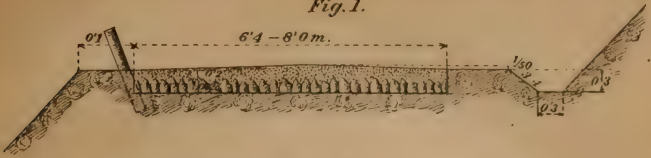 Fig. 1.
0'1
6'4 – 8'0 m.
0'2
1/50
0'3
0'3